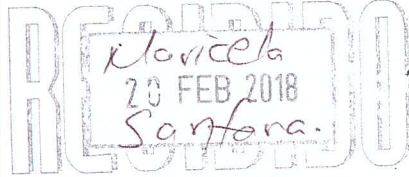 RECIBIDO
Maricela
20 FEB 2018
Santana.